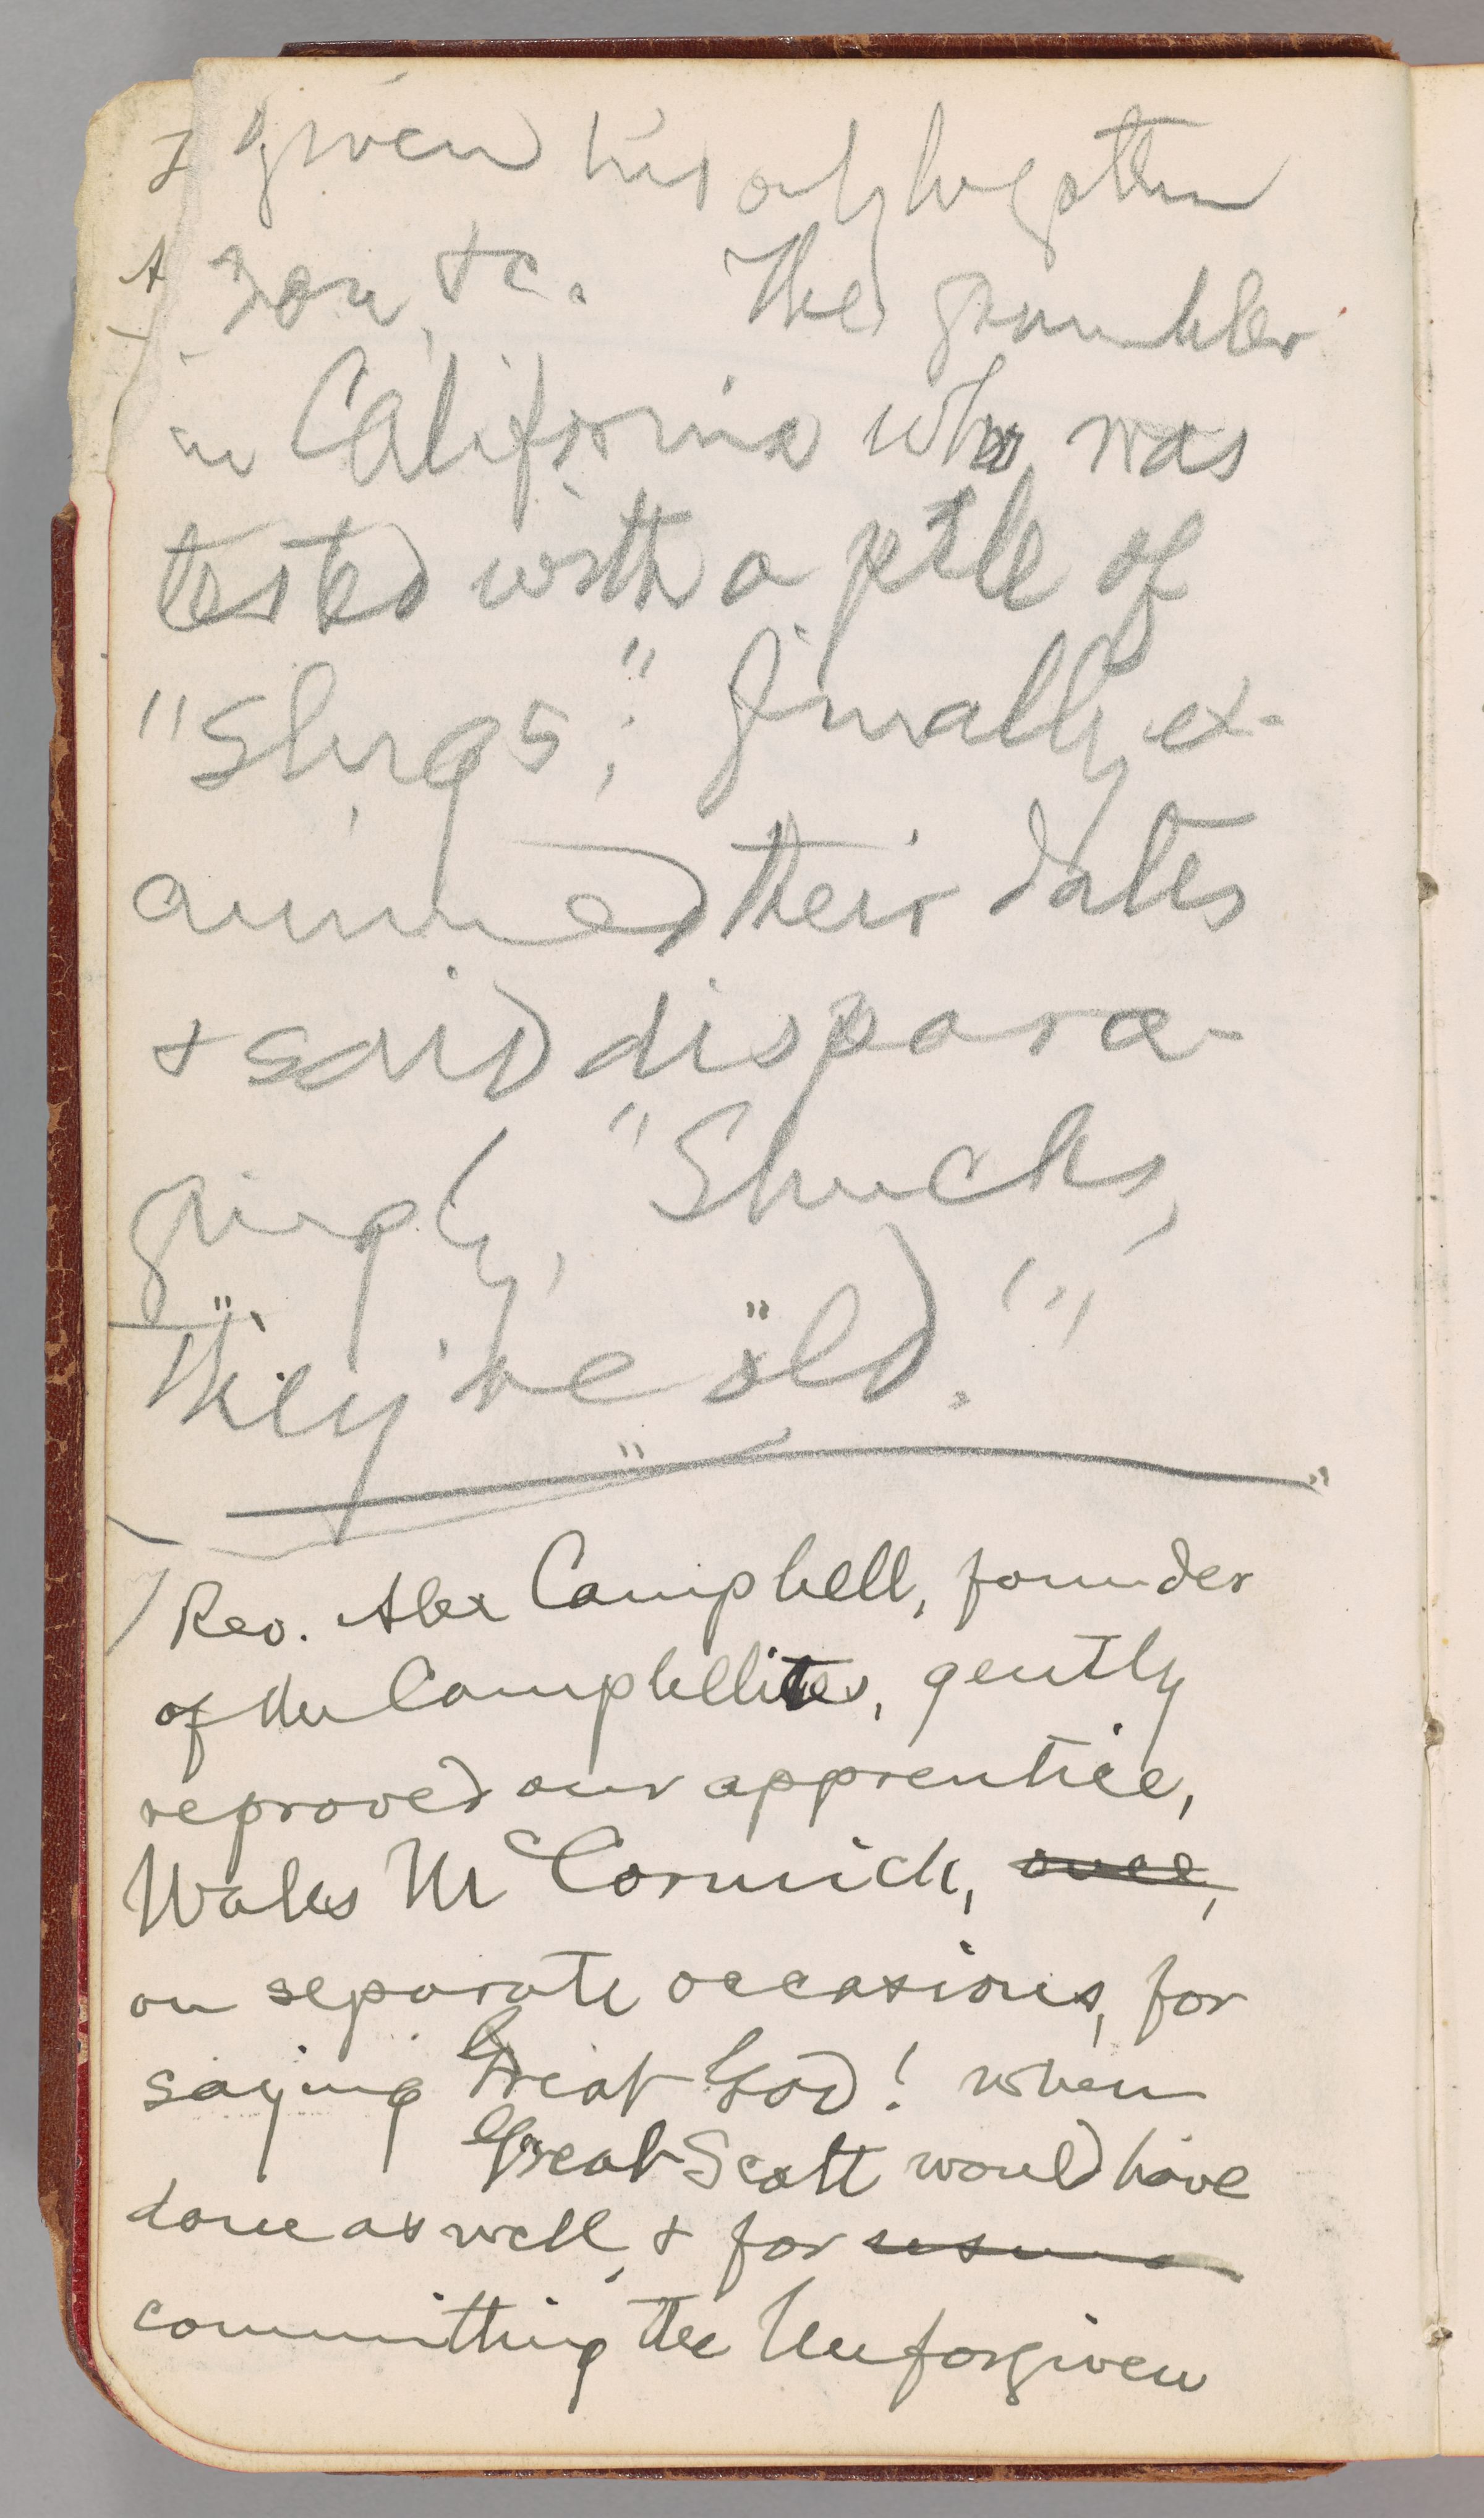 given his only begotten
Son, &c. The grumbler
in California who was
tested with a pile of
"Slugs;" finally ex-
amined their dates
& said dispara-
gingly, "Shucks,
they're old."
Rev. Alex Campbell, founder
of the Campbellites, gently
reproved our apprentice,
Wales McCormick, once,
on separate occasions, for
saying Great God! when
Great Scott would have
done as well, & for using
committing the Unforgiven